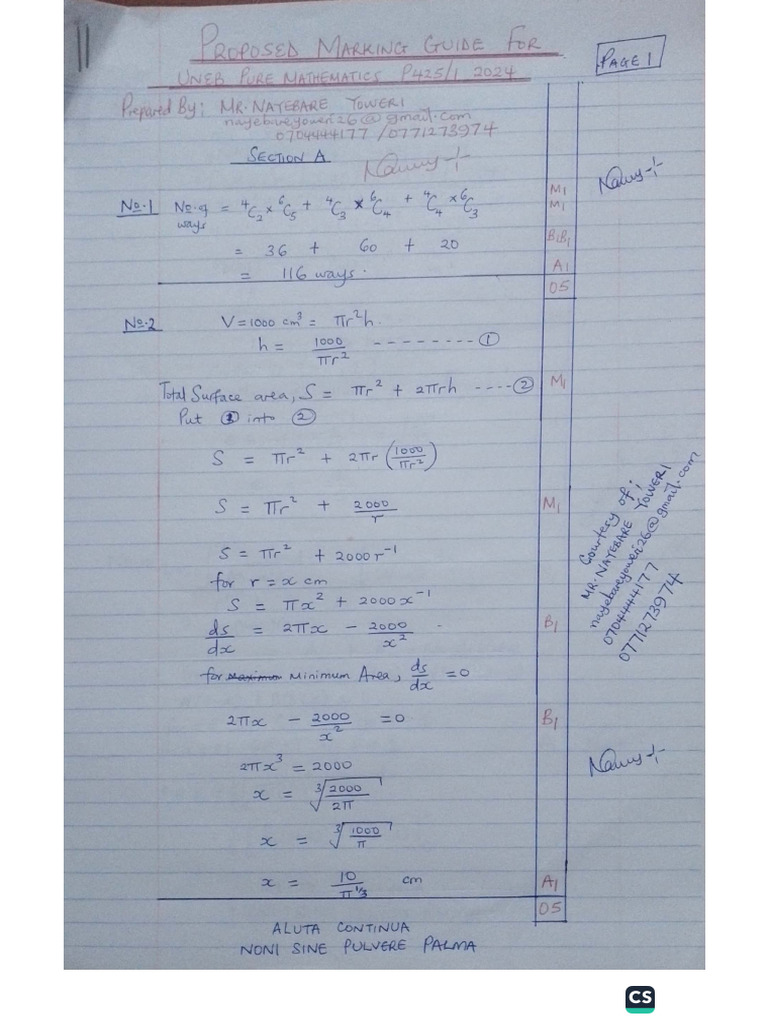 11
PROPOSED MARKING GUIDE FOR
UNEB PURE MATHEMATICS P425/1 2024
PAGE 1
Prepared By; MR. NAYEBARE YOWERI
nayebareyoweri26@gmail.com
0704444177 / 0771273974
SECTION A
No.1 No. of ways = ⁴C₂ × ⁶C₅ + ⁴C₃ × ⁶C₄ + ⁴C₄ × ⁶C₃ M1 M1
= 36 + 60 + 20 B1B1
= 116 ways. A1
05
No.2 V = 1000 cm³ = πr²h.
h = 1000/πr² -------- ①
Total Surface area, S = πr² + 2πrh ---- ② M1
Put ① into ②
S = πr² + 2πr (1000/πr²)
S = πr² + 2000/r M1
S = πr² + 2000r⁻¹
for r = x cm
S = πx² + 2000x⁻¹
ds/dx = 2πx − 2000/x² . B1
for Maximum Minimum Area, ds/dx = 0
2πx − 2000/x² = 0 B1
2πx³ = 2000
x = ∛(2000/2π)
x = ∛(1000/π)
x = 10/π^1/3 cm A1
05
Courtesy of;
MR. NAYEBARE YOWERI
nayebareyoweri26@gmail.com
0704444177
0771273974
ALUTA CONTINUA
NONI SINE PULVERE PALMA
CS